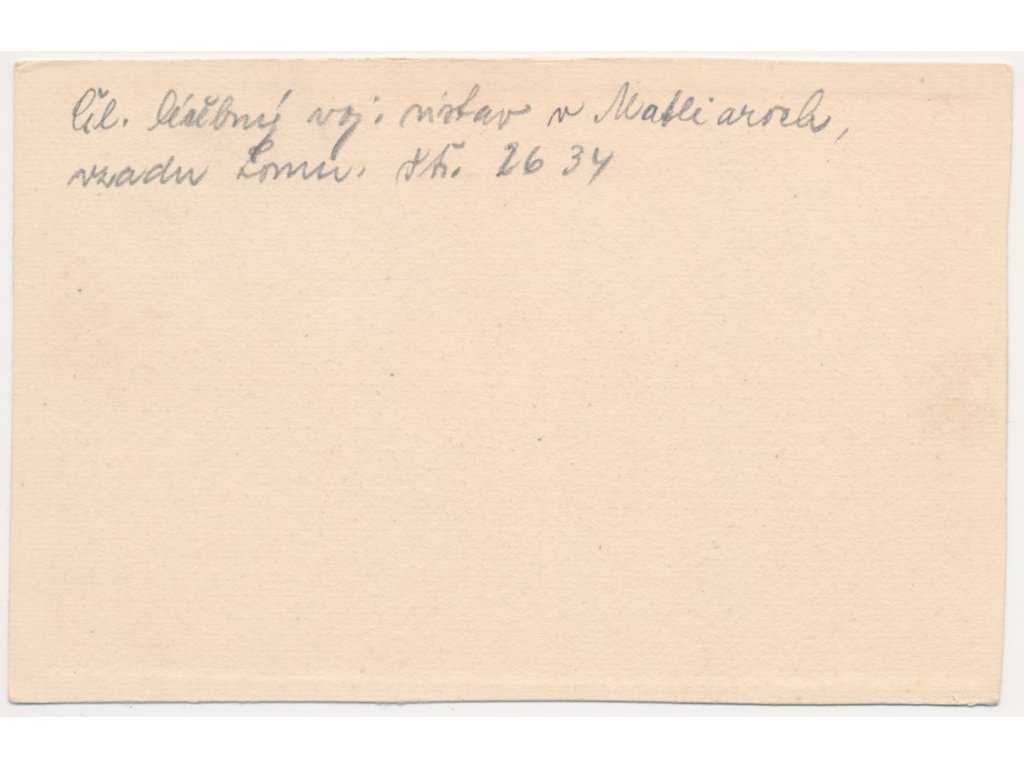 Čl. léčebný voj. ústav v Matliaroch,
vzadu Lomn. št. 2634